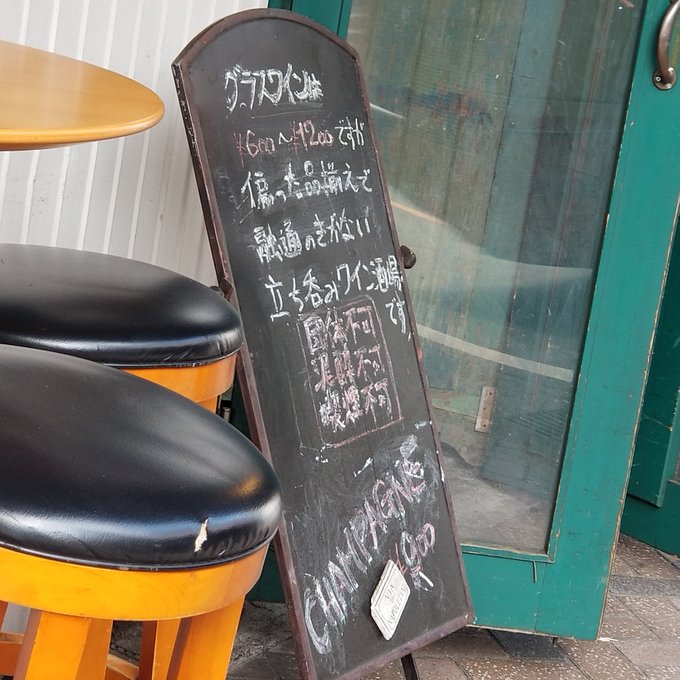 グラスワインは
¥600〜¥1200ですが
偏った品揃えで
融通のきかない
立ち呑みワイン酒場です
団体不可
泥酔不可
喫煙不可
CHAMPAGNE
¥900